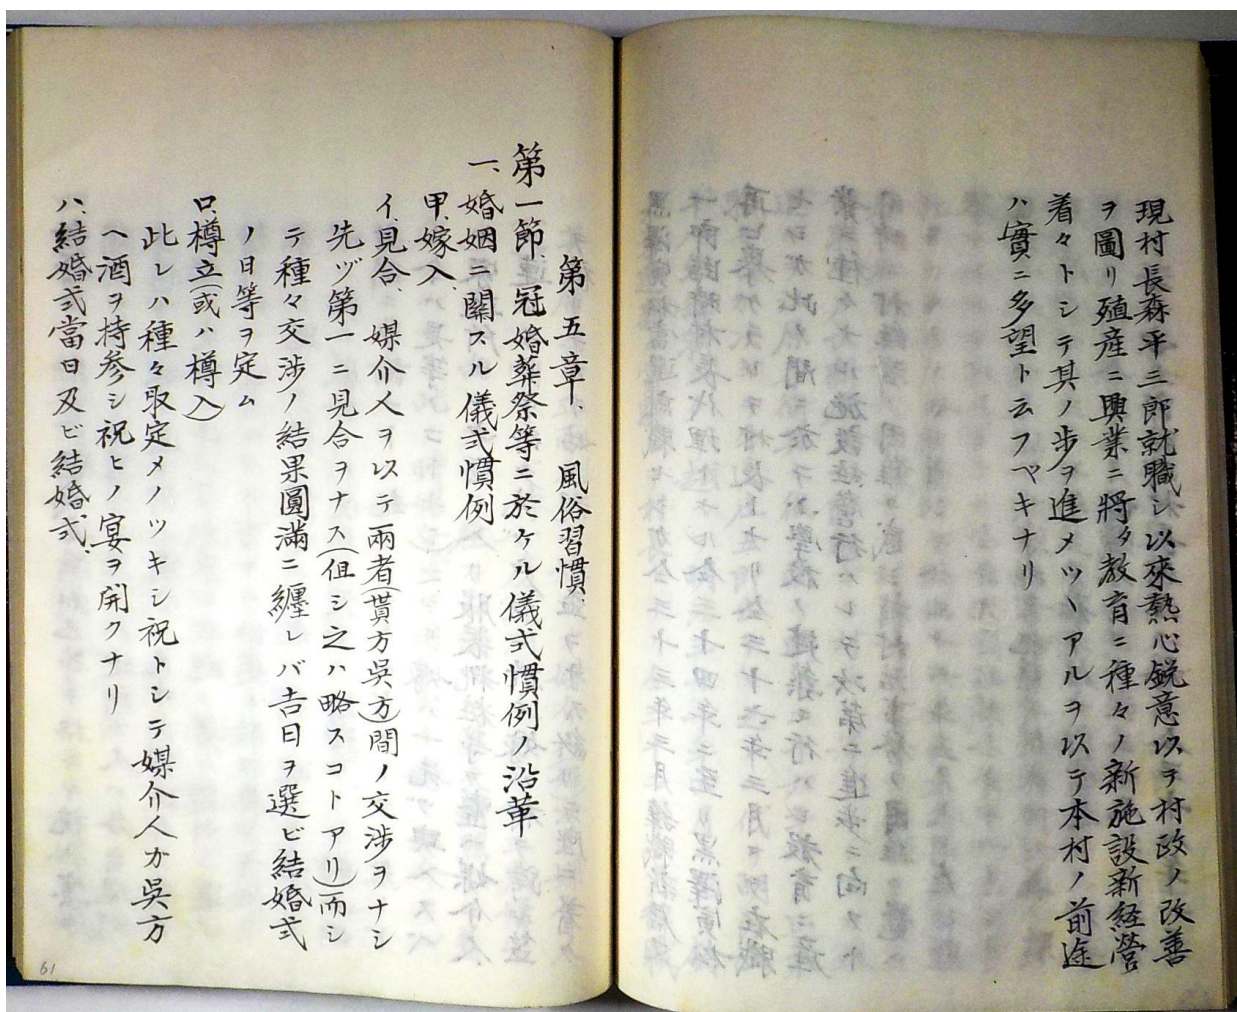 現村長森平三郎就職シ以來熱心鋭意以ヲ村政ノ改善
ヲ圖リ殖産ニ興業ニ將タ教育ニ種々ノ新施設新経營
着々トシテ其ノ歩ヲ進メツヽアルヲ以テ本村ノ前途
ハ實ニ多望ト云フベキナリ
第五章、風俗習慣、
第一節、冠婚葬祭等ニ於ケル儀式慣例ノ沿革
一、婚姻ニ關スル儀式慣例
甲、嫁入、
イ、見合、媒介人ヲ以テ兩者(貰方呉方)間ノ交渉ヲナシ
先ヅ第一ニ見合ヲナス(但シ之ハ略スコトアリ)而シ
テ種々交渉ノ結果圓滿ニ纏レバ吉日ヲ選ビ結婚式
ノ日等ヲ定ム
ロ、樽立(或ハ樽入)
此レハ種々取定メノツキシ祝トシテ媒介人カ呉方
ヘ酒ヲ持参シ祝ヒノ宴ヲ開クナリ
ハ、結婚式當日及ビ結婚式、
61